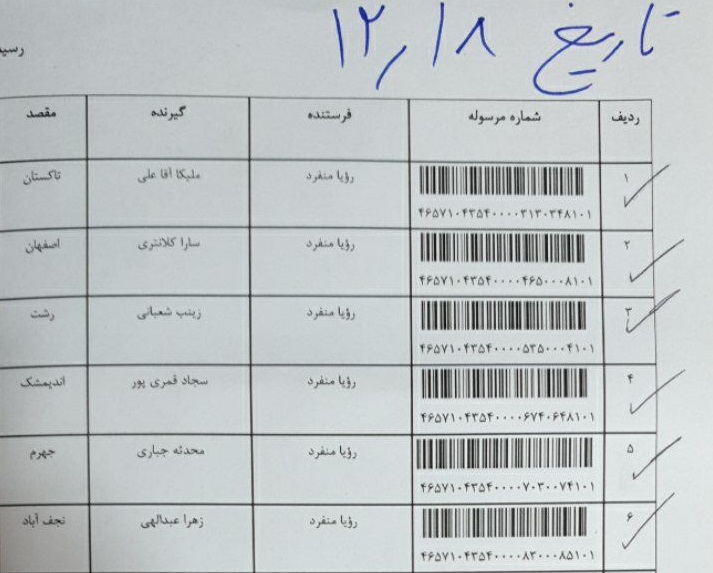 تاریخ ۱۲٫۱۸
ردیف شماره مرسوله فرستنده گیرنده مقصد
۱ رؤیا منفرد ملیکا آقا علی تاکستان
۴۶۵۷۱۰۴۳۵۴۰۰۰۰۳۱۳۰۳۴۸۱۰۱
۲ رؤیا منفرد سارا کلانتری اصفهان
۴۶۵۷۱۰۴۳۵۴۰۰۰۰۴۶۵۰۰۰۸۱۰۱
۳ رؤیا منفرد زینب شعبانی رشت
۴۶۵۷۱۰۴۳۵۴۰۰۰۰۵۳۵۰۰۰۴۱۰۱
۴ رؤیا منفرد سجاد قمری پور اندیمشک
۴۶۵۷۱۰۴۳۵۴۰۰۰۰۶۷۴۰۶۴۸۱۰۱
۵ رؤیا منفرد محدثه جباری جهرم
۴۶۵۷۱۰۴۳۵۴۰۰۰۰۷۰۳۰۰۷۴۱۰۱
۶ رؤیا منفرد زهرا عبدالهی نجف آباد
۴۶۵۷۱۰۴۳۵۴۰۰۰۰۸۳۰۰۰۸۵۱۰۱